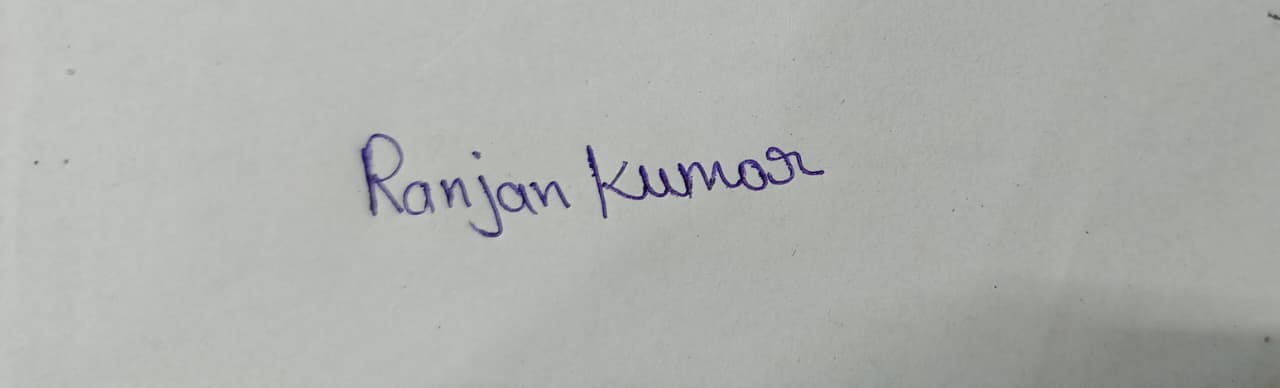 Ranjan Kumar